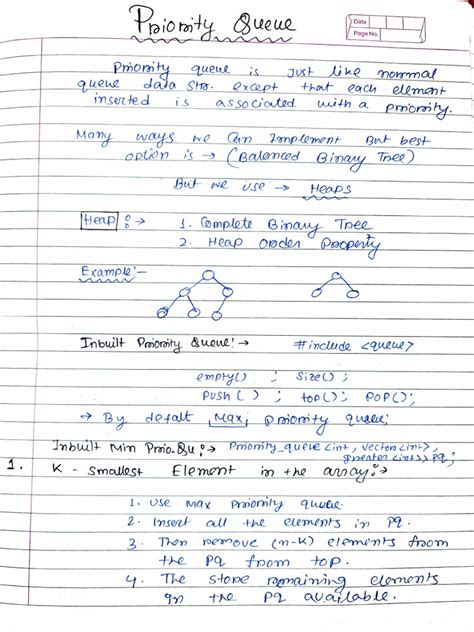 Priority Queue
Date
Page No.
Priority queue is just like normal
queue data str. except that each element
inserted is associated with a priority.
Many ways we can Implement But best
option is → (Balanced Binary Tree)
But we use → Heaps
Heap :→ 1. Complete Binary Tree
2. Heap Order Property
Example:-
Inbuilt Priority Queue! → #include <queue>
empty() ; Size() ;
PUSH ( ) ; top() ; POP() ;
→ By defalt Max, priority queue;
Inbuilt Min Prio. Qu :→ Priority_queue <int, vector<int>,
greater<int>> pq;
1. K - Smallest Element in the array:→
1. Use Max Priority queue.
2. Insert all the elements in PQ.
3. Then remove (n-k) elements from
the PQ from top.
4. The store remaining elements
in the PQ available.